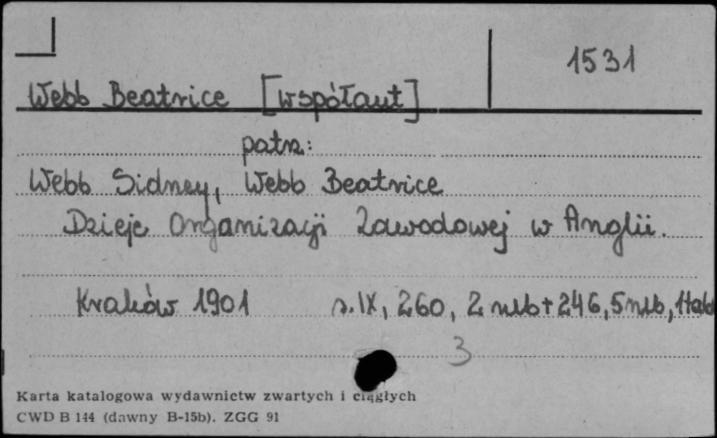 1531
Webb Beatrice [współaut]
patrz:
Webb Sidney, Webb Beatrice
Dzieje Organizacji Zawodowej w Anglii.
Kraków 1901 s. IX, 260, 2 nlb + 246, 5 nlb, 1 tabl
3
Karta katalogowa wydawnictw zwartych i ciągłych
CWD B 144 (dawny B-15b). ZGG 91